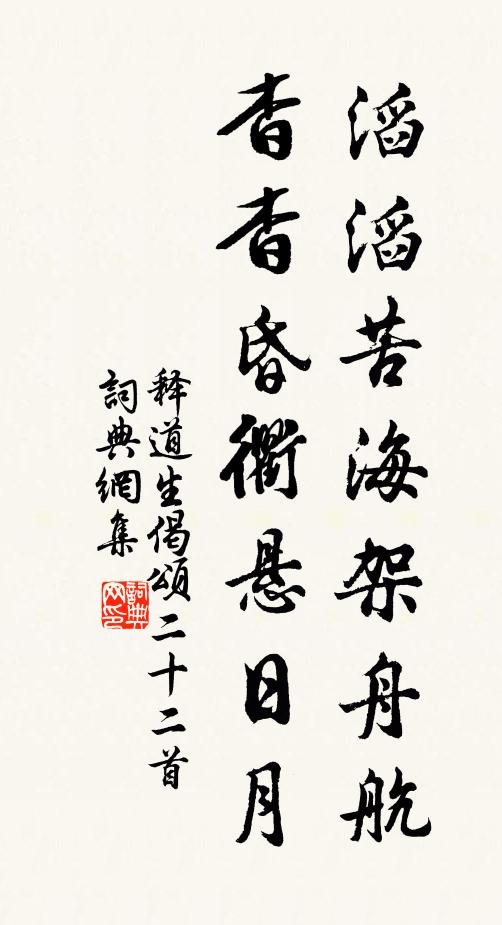 滔滔苦海架舟航
杳杳昏衢悬日月
释道生偈颂二十二首
詞典網集
詞典网印